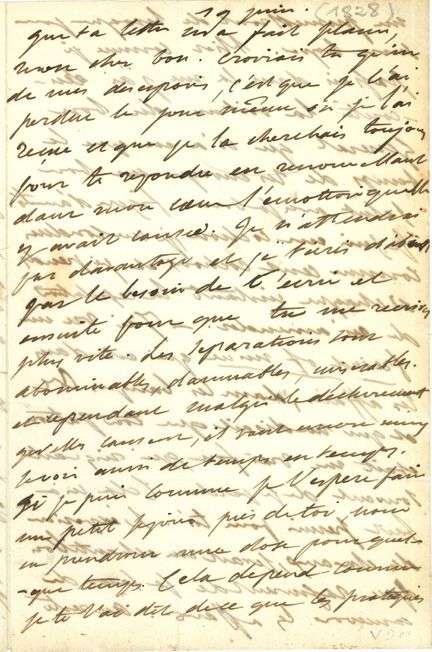 19 juin. (1828)
que ta lettre m'a fait plaisir,
mon cher bon. Croirais tu qu'un
de mes désespoirs, c'est que je l'ai
perdue le jour même où je l'ai
reçue et que je la cherchais toujours
pour te répondre en renouvellant
dans mon cœur l'émotion qu'elle
y avait causée. Je n'attendrai
pas davantage et je t'écris
par le besoin de t'écrire et
ensuite pour que tu me récrives
plus vite. Les séparations sont
abominables damnables, misérables.
et cependant malgré le déchirement
qu'elles causent, il vaut encore mieux
se voir ainsi de temps en temps.
Si je puis comme je l'espère faire
un petit séjour près de toi, nous
en prendrons une dose pour quel-
-que temps. Cela dépend comme
je te l'ai dit de ce que les pratiques